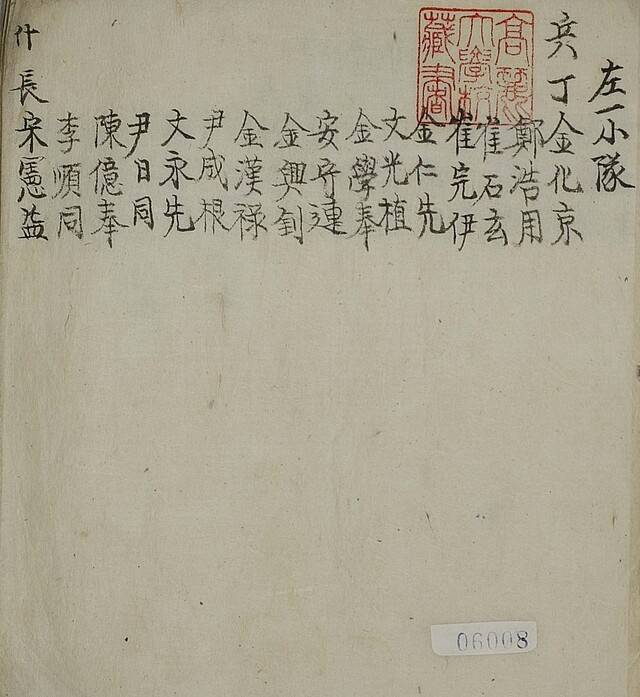 左一小隊
兵丁金化京
鄭浩用
崔石玄
崔完伊
金仁先
文光植
金學奉
安守連
金興釗
金漢祿
尹成根
文永先
尹日同
陳億奉
李順同
什長宋憲益
高麗
大學校
藏書
06008